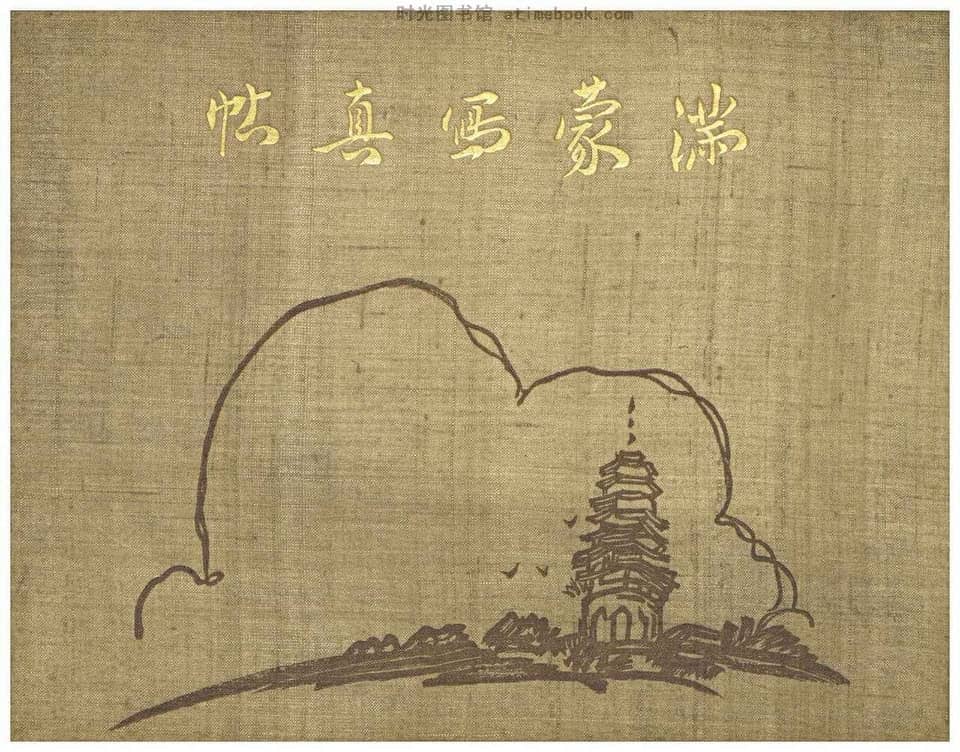 时光图书馆 atimebook.com
满蒙写真帖